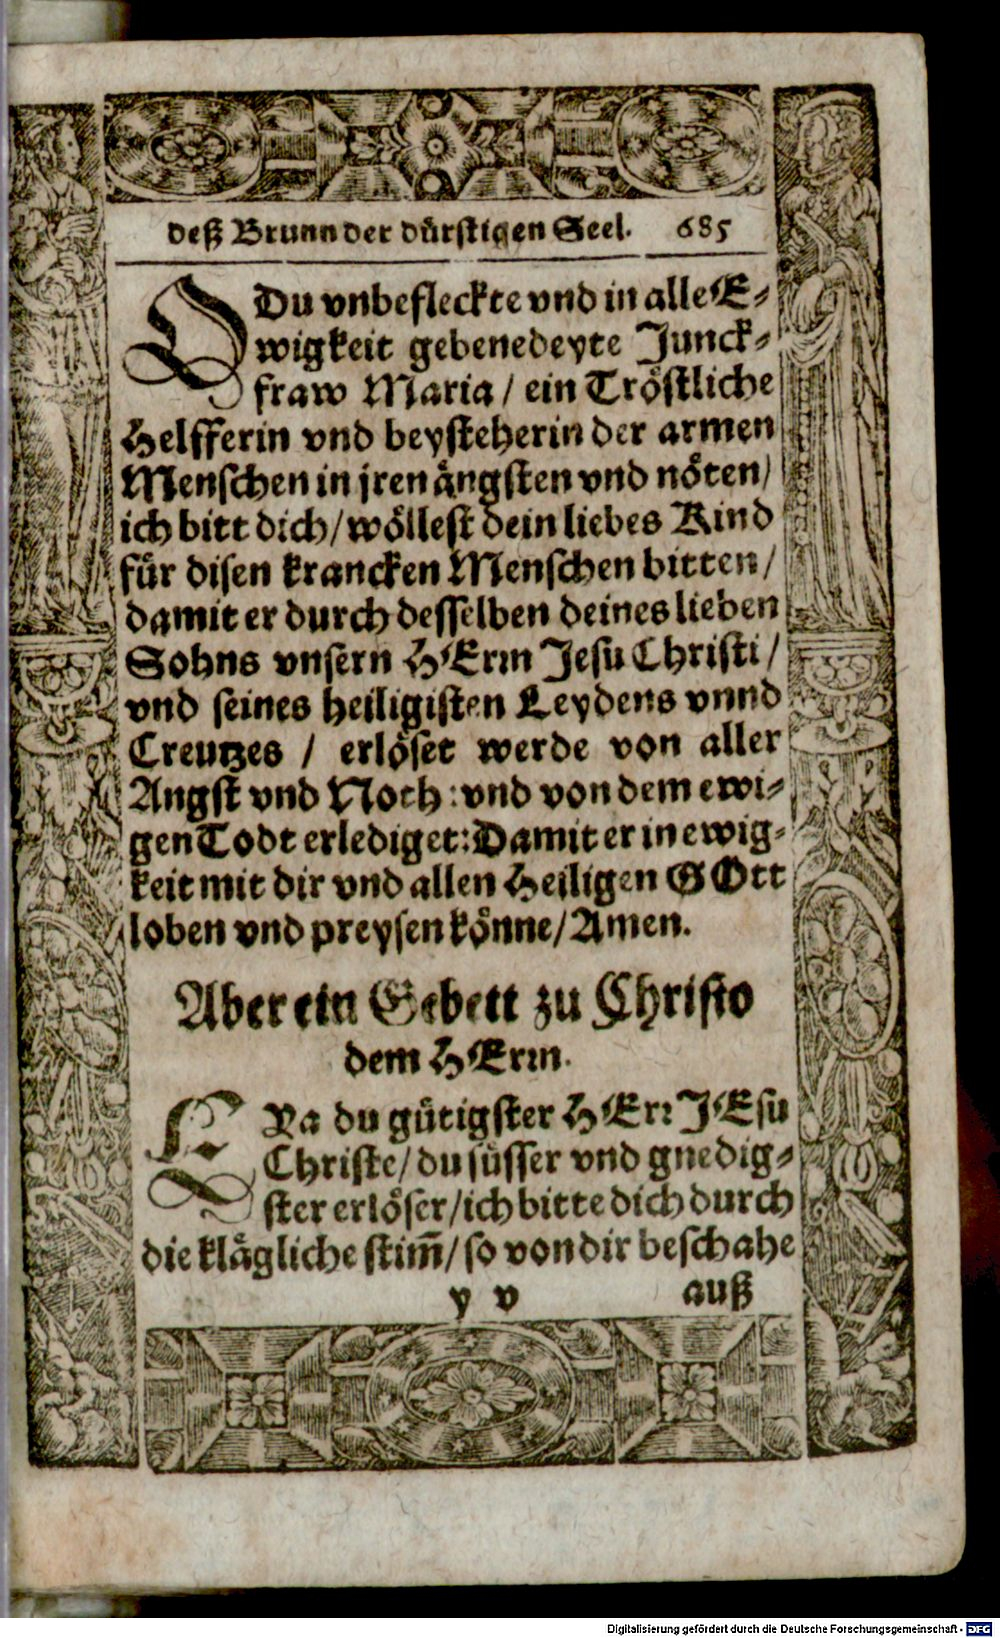 deß Brunn der dürstigen Seel. 685
O Du vnbefleckte vnd in alle E-
wigkeit gebenedeyte Junck-
fraw Maria / ein Tröstliche
Helfferin vnd beysteherin der armen
Menschen in jren ängsten vnd nöten/
ich bitt dich/ wöllest dein liebes Kind
für disen krancken Menschen bitten/
damit er durch desselben deines lieben
Sohns vnsern HErrn Jesu Christi/
vnd seines heiligisten Leydens vnnd
Creutzes / erlöset werde von aller
Angst vnd Noth: vnd von dem ewi-
gen Todt erlediget: Damit er in ewig-
keit mit dir vnd allen Heiligen GOtt
loben vnd preysen könne/ Amen.
Aber ein Gebett zu Christo
dem HErrn.
EYa du gütigster HErr JEsu
Christe/ du süsser vnd gnedig-
ster erlöser/ ich bitte dich durch
die klägliche stim̃/ so von dir beschahe
y v auß
Digitalisierung gefördert durch die Deutsche Forschungsgemeinschaft - DFG